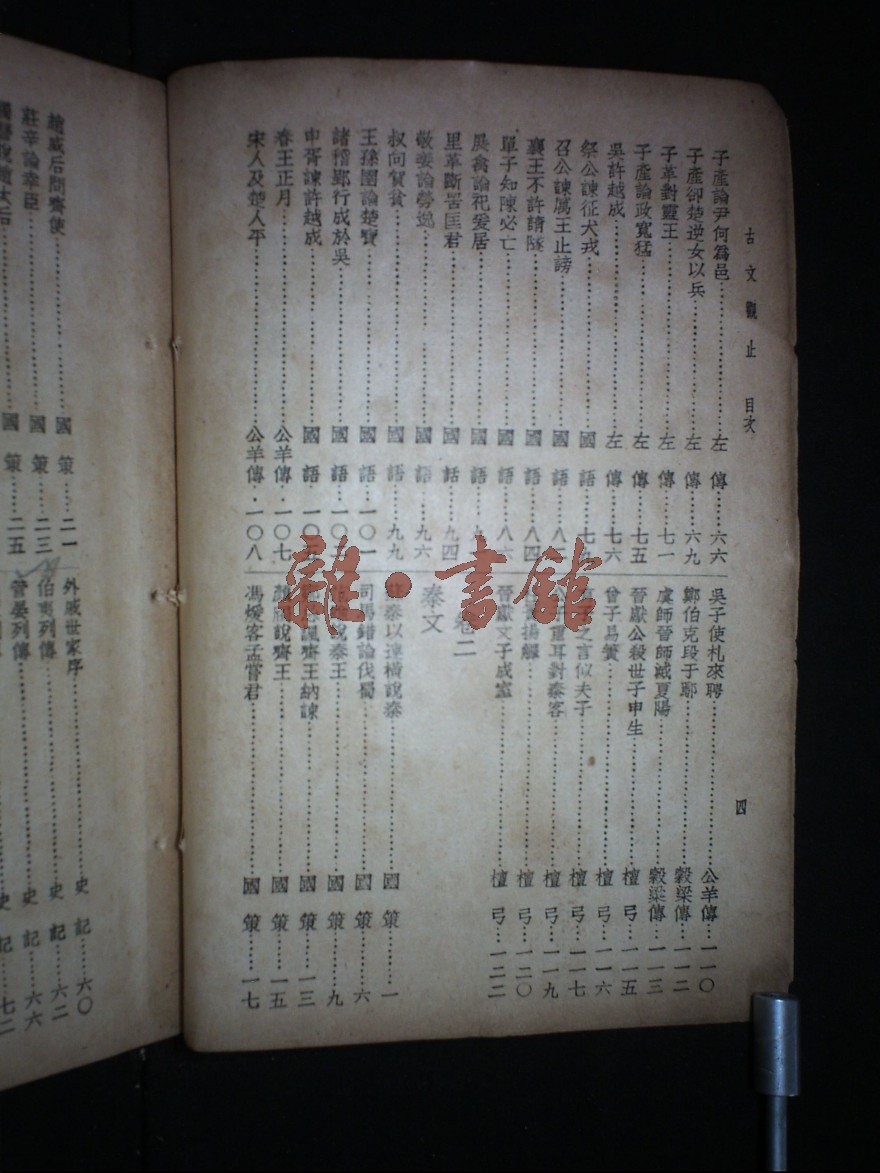 古文觀止 目次
四
子產論尹何為邑 左傳 六六
子產卻楚逆女以兵 左傳 六九
子革對靈王 左傳 七一
子產論政寬猛 左傳 七五
吳許越成 左傳 七六
祭公諫征犬戎 國語 七九
召公諫厲王止謗 國語 八
襄王不許請隧 國語 八四
單子知陳必亡 國語 八六
展禽論祀爰居 國語 九
里革斷罟匡君 國話 九四
敬姜論勞逸 國語 九六
叔向賀貧 國語 九九
王孫圉論楚寶 國語 一〇一
諸稽郢行成於吳 國語 一〇
申胥諫許越成 國語 一〇五
春王正月 公羊傳 一〇七
宋人及楚人平 公羊傳 一〇八
吳子使札來聘 公羊傳 一一〇
鄭伯克段于鄢 穀梁傳 一一二
虞師晉師滅夏陽 穀梁傳 一一三
晉獻公殺世子申生 檀弓 一一五
曾子易簀 檀弓 一一六
子之言似夫子 檀弓 一一七
子重耳對秦客 檀弓 一一九
揚觶 檀弓 一二〇
晉獻文子成室 檀弓 一二二
卷二
秦文
蘇秦以連橫說秦 國策 一
司馬錯論伐蜀 國策 六
說秦王 國策 九
諷齊王納諫 國策 一三
顏斶說齊王 國策 一五
馮煖客孟嘗君 國策 一七
趙威后問齊使 國策 二一
莊辛論幸臣 國策 二三
觸讋說趙太后 國策 二五
外戚世家序 史記 六〇
伯夷列傳 史記 六二
管晏列傳 史記 六六
史記 七二
雜·書館